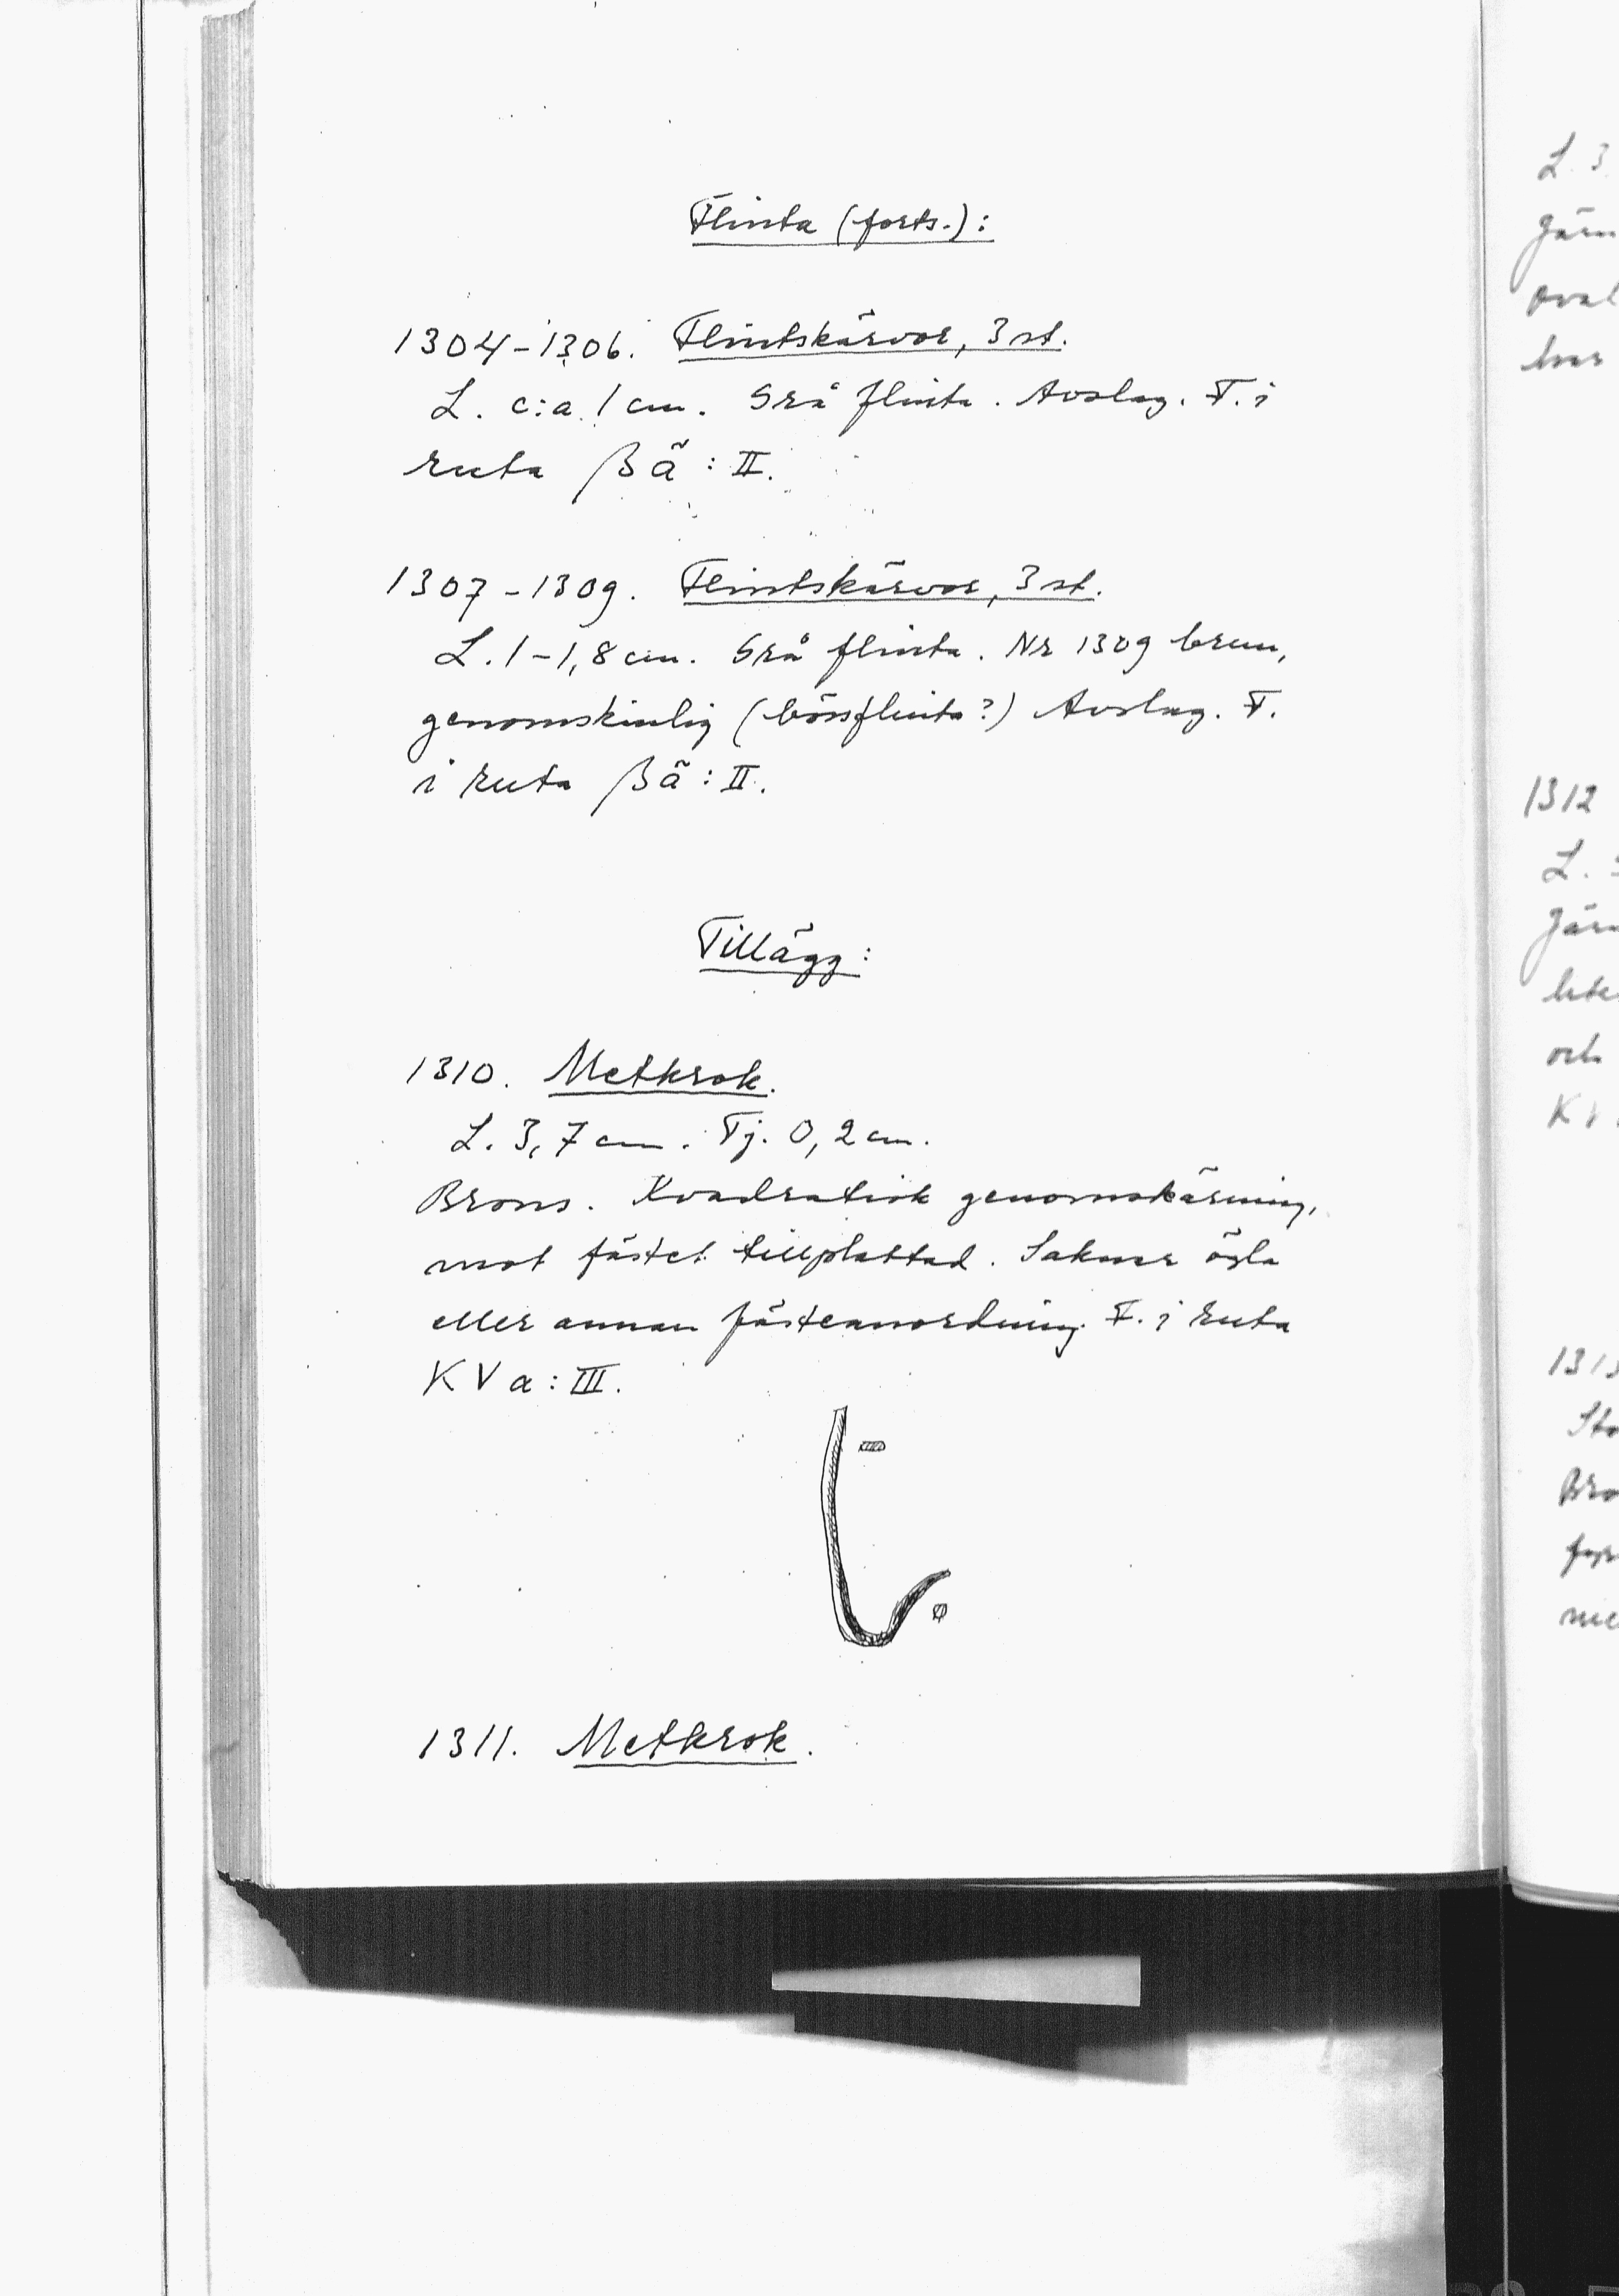 Flinta (forts.):
1304-1306. Flintskärvor, 3 st.
L. c:a 1 cm. Grå flinta. Avslag. F. i
ruta βä: II.
1307-1309. Flintskärvor, 3 st.
L. 1-1,8 cm. Grå flinta. Nr 1309 brun,
genomskinlig (bössflinta?) Avslag. F.
i ruta βä: II.
Tillägg:
1310. Metkrok.
L. 3,7 cm. Tj. 0,2 cm.
Brons. Kvadratisk genomskärning,
mot fästet tillplattad. Saknar ögla
eller annan fästeanordning. F. i ruta
KVa: III.
1311. Metkrok.
L. 3
Järn
oval
har
1312
L.
Järn
och
K V
1313
Bro